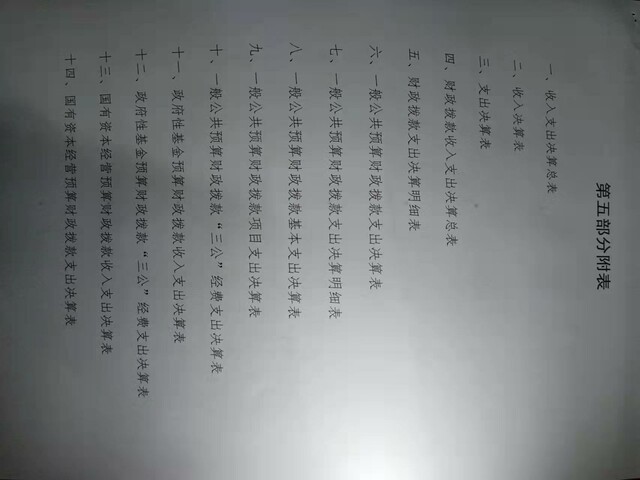 第五部分附表
一、收入支出决算总表
二、收入决算表
三、支出决算表
四、财政拨款收入支出决算总表
五、财政拨款支出决算明细表
六、一般公共预算财政拨款支出决算表
七、一般公共预算财政拨款支出决算明细表
八、一般公共预算财政拨款基本支出决算表
九、一般公共预算财政拨款项目支出决算表
十、一般公共预算财政拨款“三公”经费支出决算表
十一、政府性基金预算财政拨款收入支出决算表
十二、政府性基金预算财政拨款“三公”经费支出决算表
十三、国有资本经营预算财政拨款收入支出决算表
十四、国有资本经营预算财政拨款支出决算表